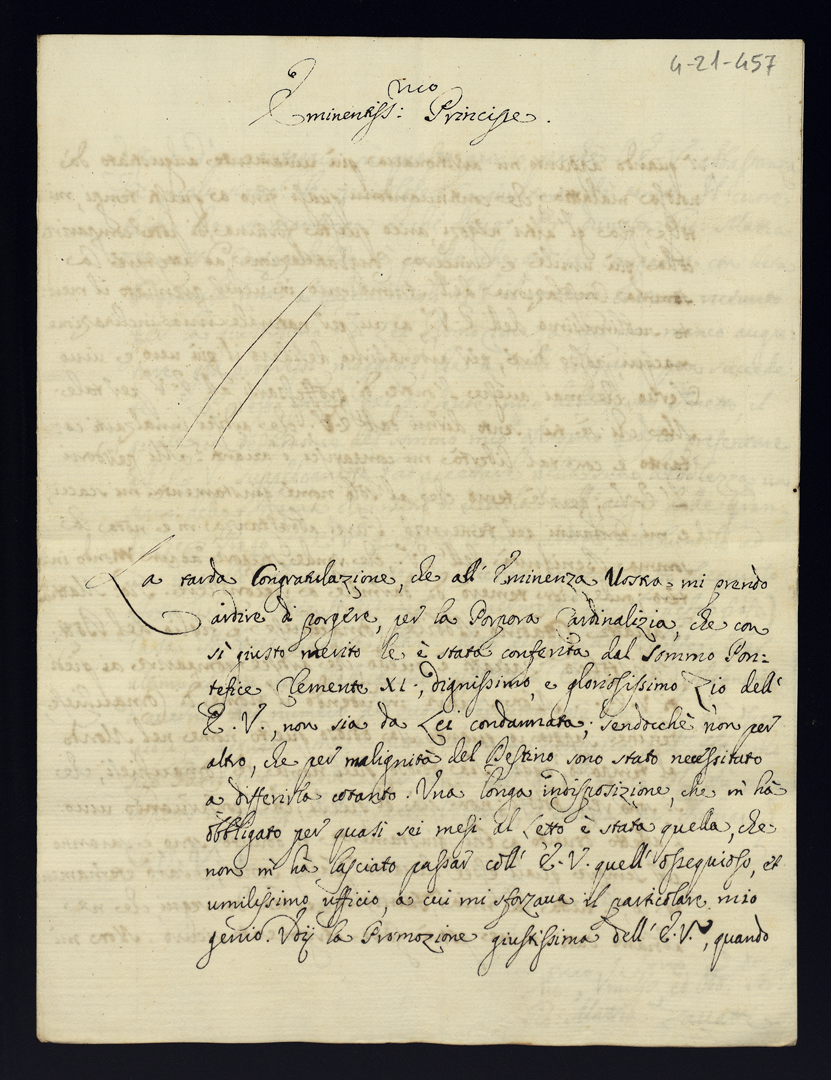 4-21-457
rico
Eminentiss: Principe.
La tarda Congratulazione, che all' Eminenza Vostra mi prendo
ardire di porgere, per la Porpora Cardinalizia, che con
sì giusto merito le è stata conferita dal Sommo Pon=
tefice Clemente XI., dignissimo, e gloriosissimo Zio dell'
E. V., non sia da Lei condannata; sendocchè non per
altro, che per malignità del Destino sono stato necessitato
a differirla cotanto. Una longa indisposizione, che m'hà
obbligato per quasi sei mesi al Letto è stata quella, che
non m'hà lasciato passar coll' E. V. quell' ossequioso, et
umilissimo ufficio, a cui mi sforzava il particolare mio
genio. Udij la Promozione giustissima dell' E. V., quando